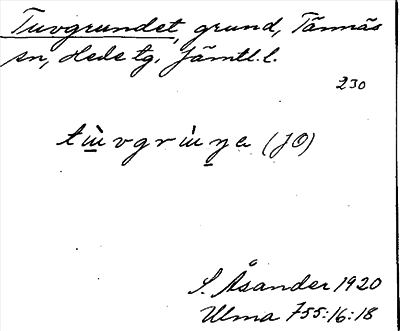 Tuvgrundet, grund, Tännäs
sn, Hede tg. Jämtl. l.
230
tu̲̇vgru̲̇ŋe (JO)
S. Åsander 1920
Ulma 755:16:18